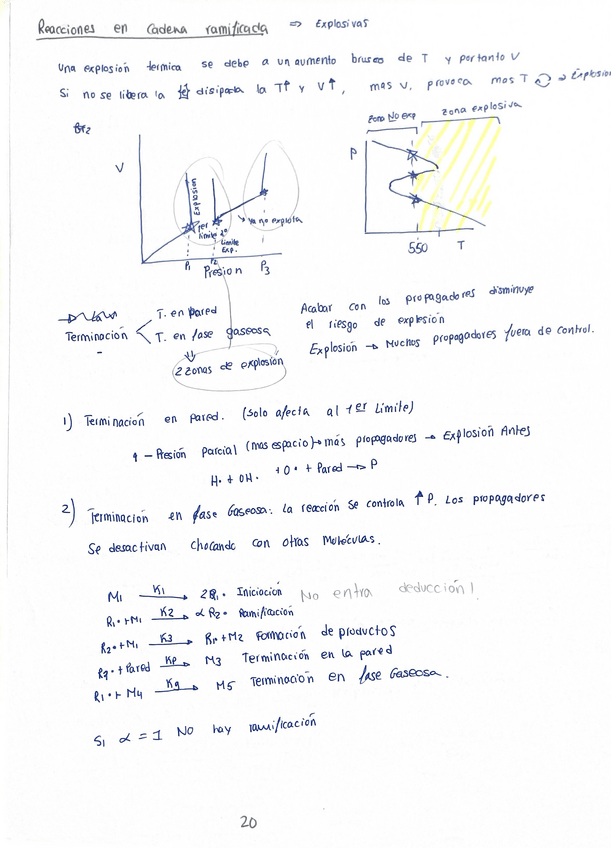 Reacciones en Cadena ramificada ⇒ Explosivas
Una explosión termica se debe a un aumento brusco de T y por tanto V
Si no se libera la disipada la T↑ y V↑, mas v. provoca mas T ⇒ Explosion
zona No exp
zona explosiva
V
Explosion
1er limite
2º Limite Exp.
Ya no explota
P1 P2 P3
Presion
P
550 T
Terminación
T. en pared
T. en fase gaseosa
2 zonas de explosión
Acabar con los propagadores disminuye
el riesgo de explosión
Explosión → Muchos propagadores fuera de control.
1) Terminación en pared. (solo afecta al 1er Limite)
↑ - Presión Parcial (mas espacio) → más propagadores → Explosion Antes
H• + OH• + O• + Pared → P
2) Terminación en fase Gaseosa: La reacción se controla ↑ P. Los propagadores
Se desactivan chocando con otras Moleculas.
M1 K1 → 2R1• Iniciación No entra deducción!
R1• + M1 K2 → α R2• Ramificación
R2• + M1 K3 → R1• + M2 Formación de productos
R2• + Pared Kp → M3 Terminación en la pared
R1• + M4 Kg → M5 Terminación en fase Gaseosa.
Si α = 1 No hay ramificación
20